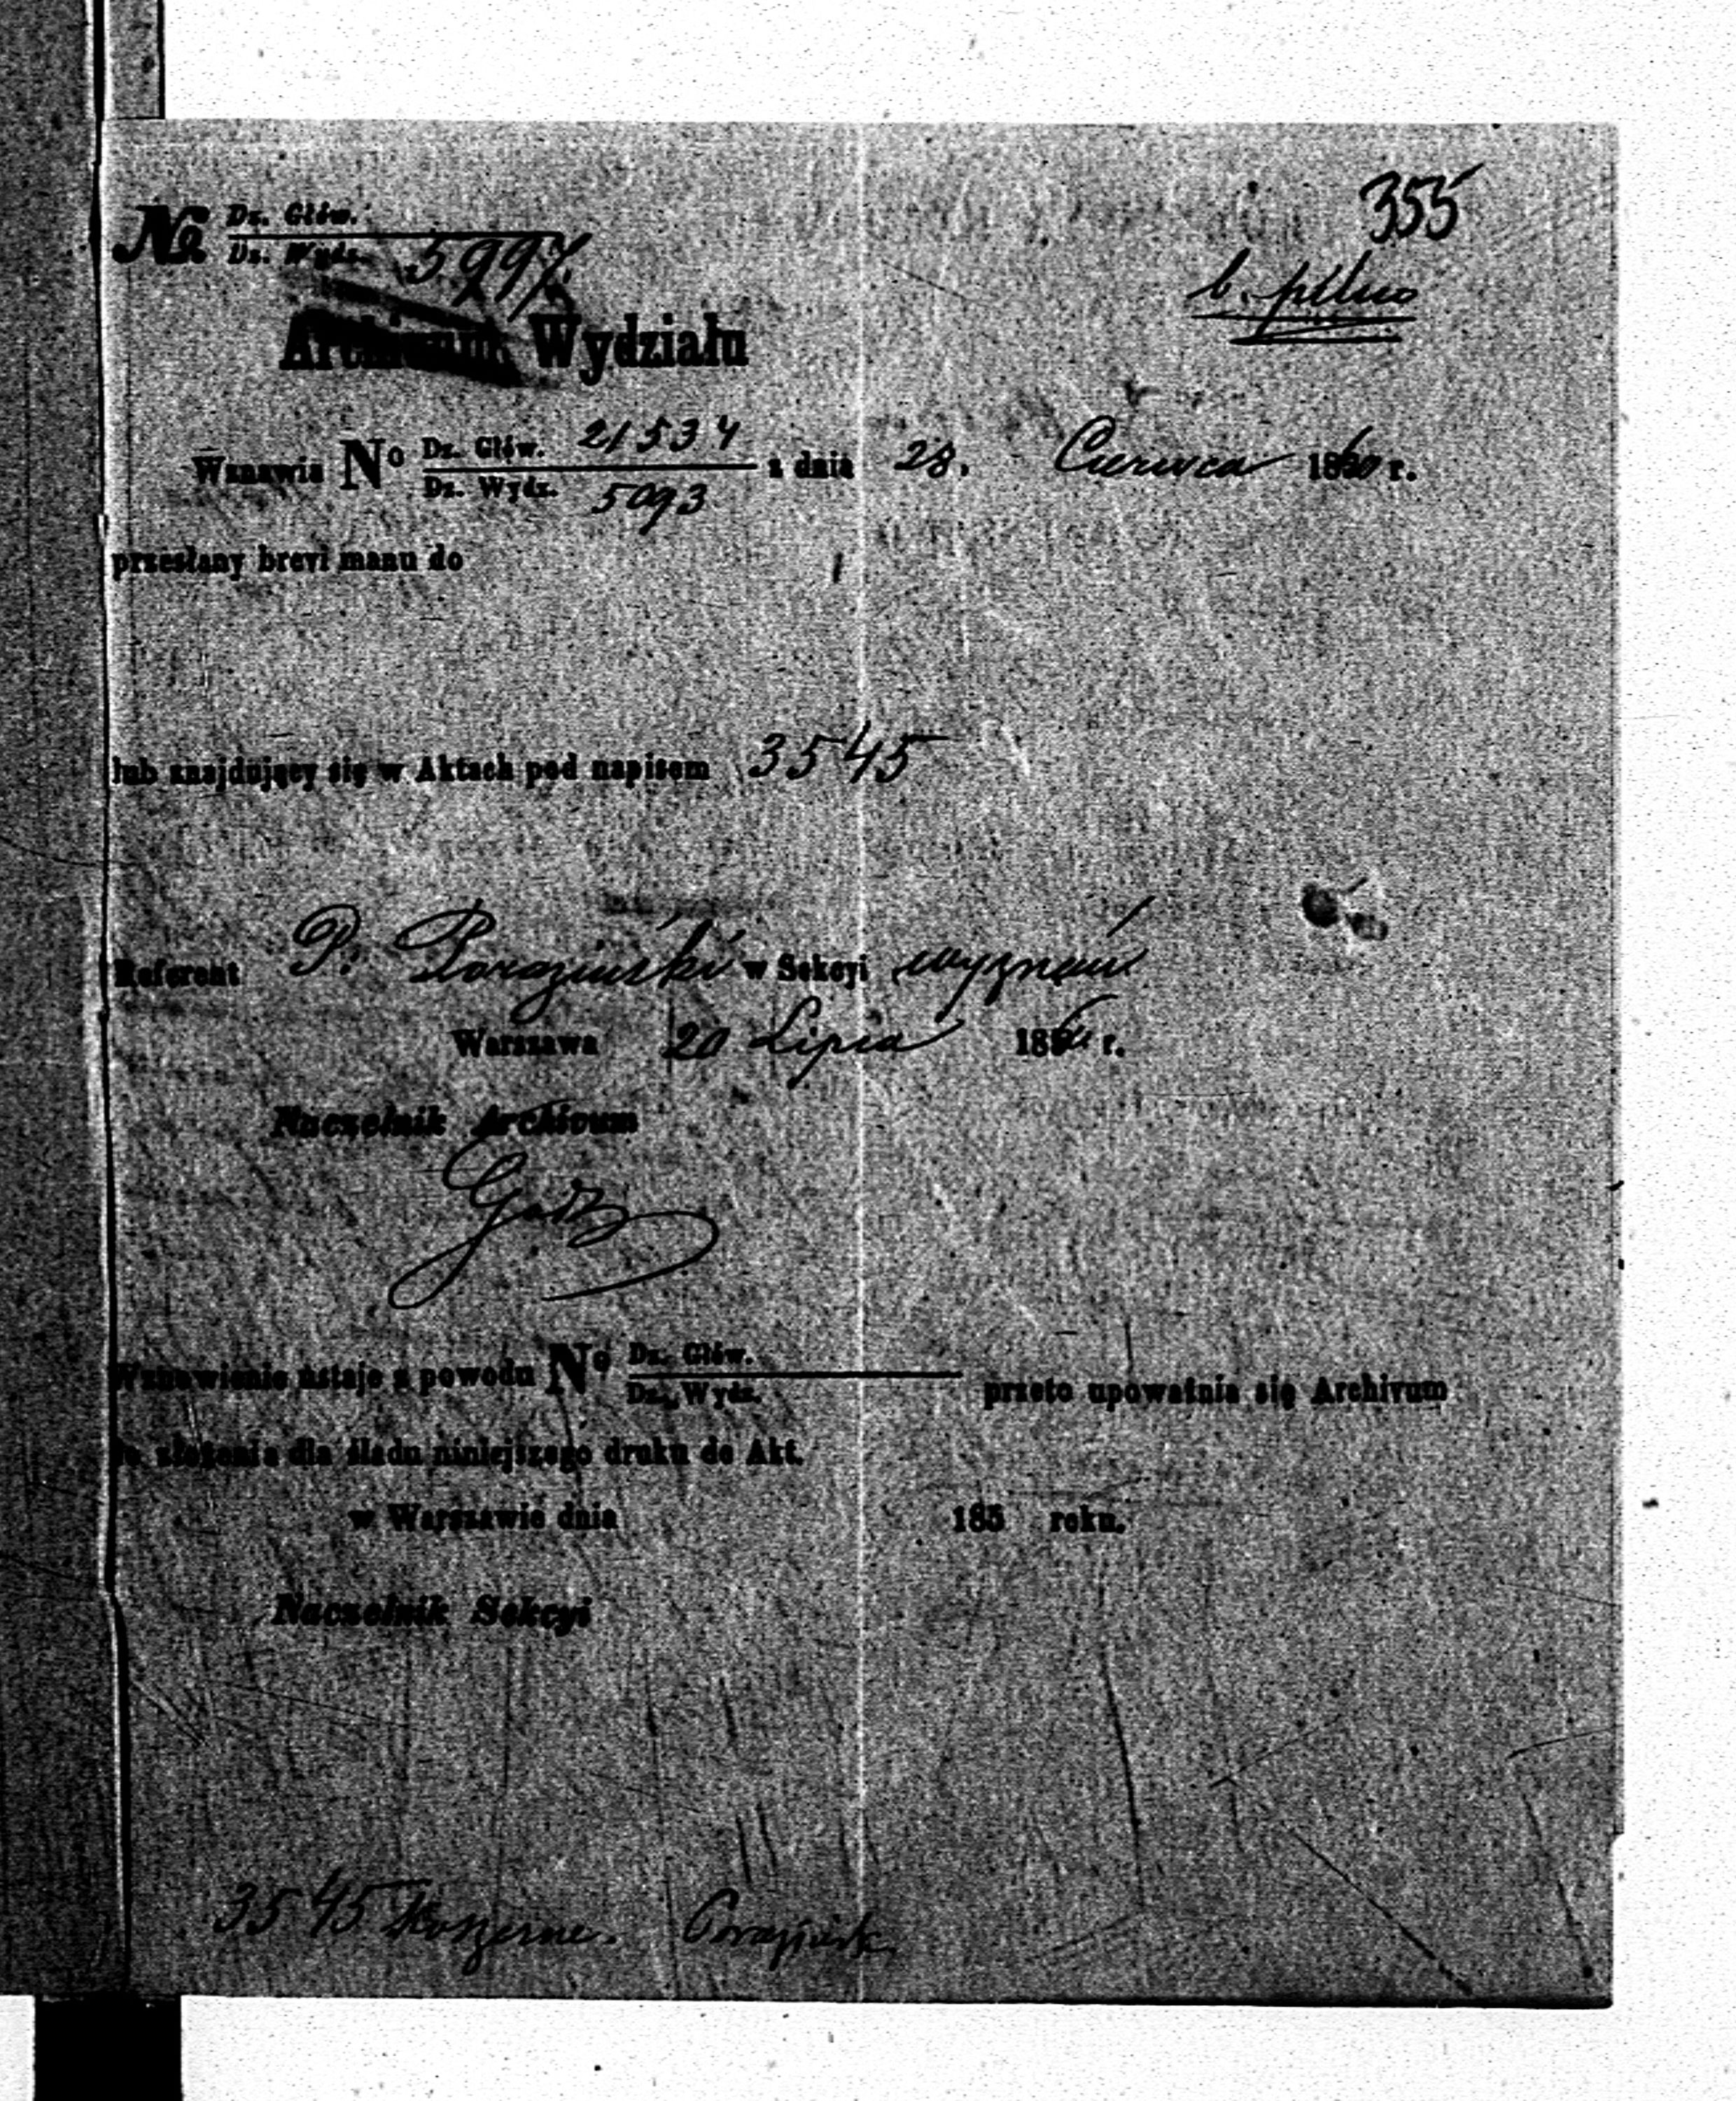 355
№ Dz. Głów.
Dz. Wydz. 5997
b. pilno
Archivum Wydziału
Wznawia No Dz. Głów. 21534 z dnia 28. Czerwca 1860 r.
Dz. Wydz. 5093
przesłany brevi manu do
lub znajdujący się w Aktach pod napisem 3545
Referent P. Poraziński w Sekcyi wyznań
Warszawa 20 Lipca 186 r.
Naczelnik Archivum
Wznowienie ustaje z powodu No Dz. Głów.
Dz. Wydz. przeto upoważnia się Archivum
do złożenia dla śladu niniejszego druku do Akt.
w Warszawie dnia 185 roku.
Naczelnik Sekcyi
3545 Koszerne.